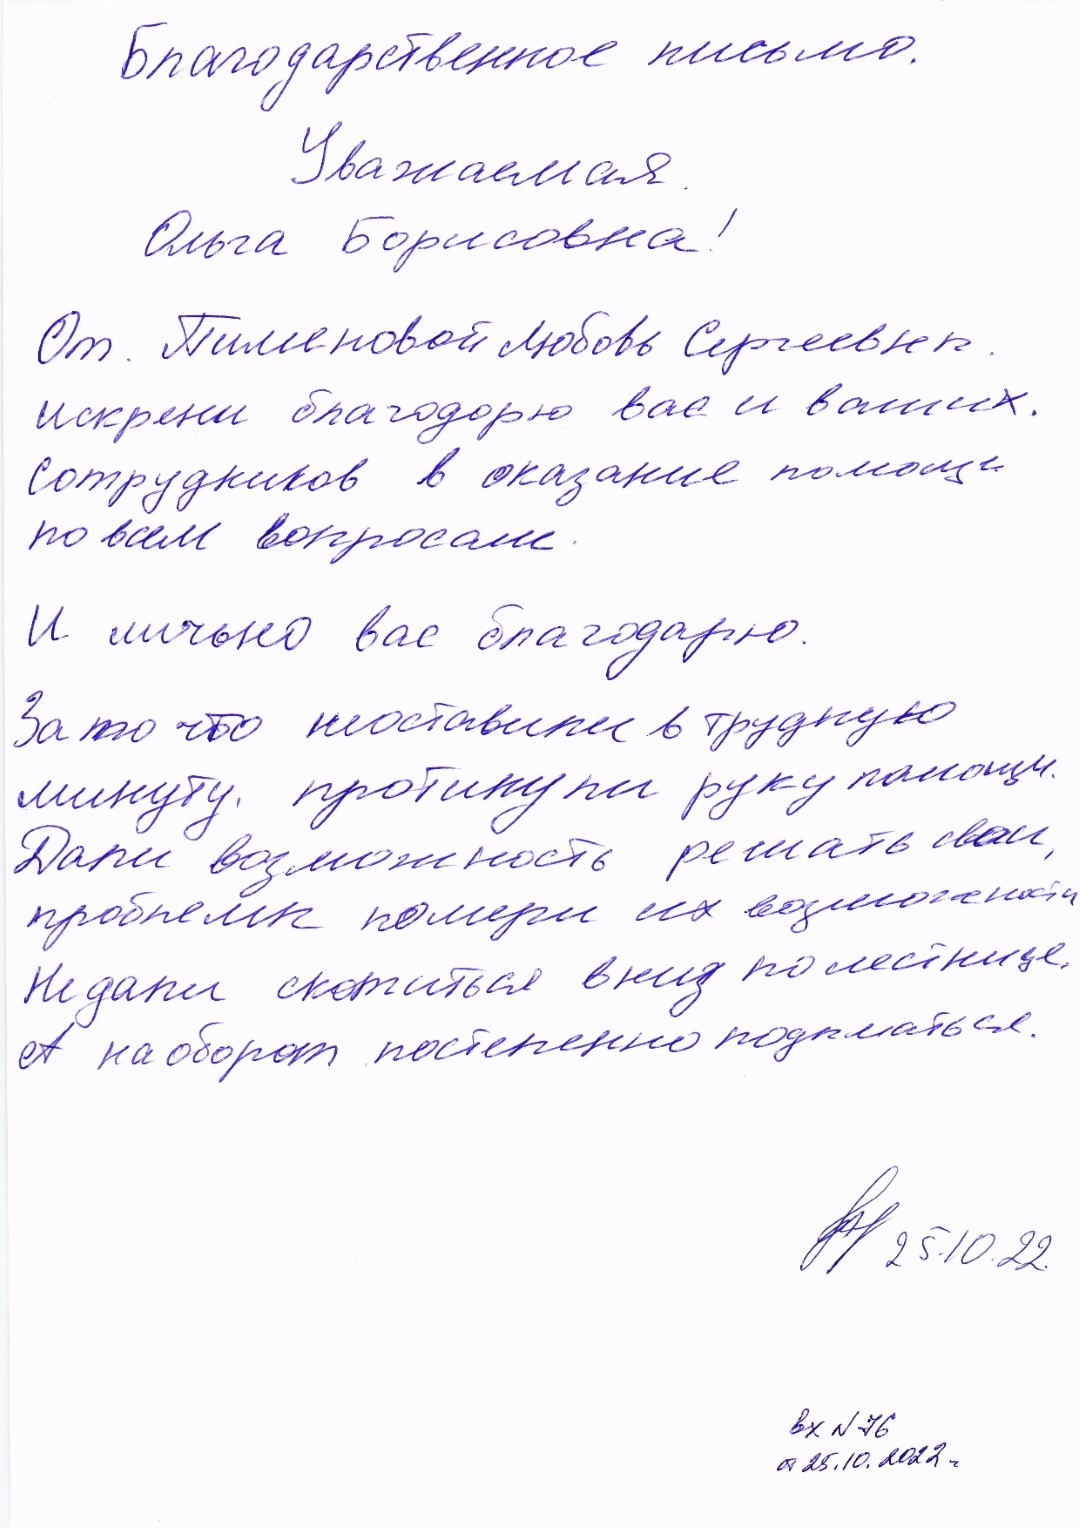 Благодарственное письмо.
Уважаемая.
Ольга Борисовна!
От. Пименовой Любовь Сергеевны.
искрени благодорю вас и ваших.
сотрудников в оказание помощи
по всем вопросам.
И личьно вас благодарю.
За то что неоставили в трудную
минуту. протинули руку помощи.
Дали возможность решать свои,
проблемы помери их возможности
Недали скотиться вниз по лестнице.
А наоборот постепенно подыматься.
25.10.22.
вх N 76
от 25.10.2022г.